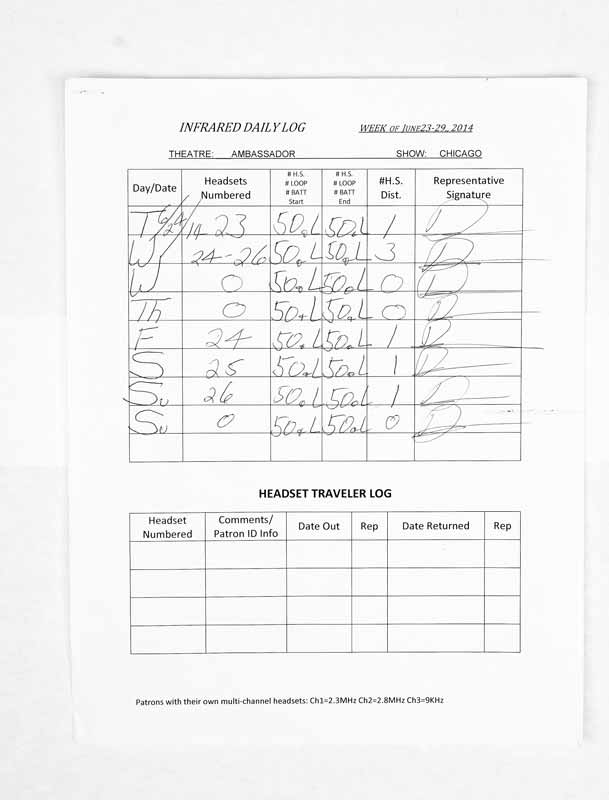 INFRARED DAILY LOG WEEK OF JUNE23-29, 2014
THEATRE: AMBASSADOR SHOW: CHICAGO
Day/Date Headsets Numbered # H.S. # LOOP # BATT Start # H.S. # LOOP # BATT End #H.S. Dist. Representative Signature
T 6/24/14 23 50 L 50 L 1
W 24-26 50 L 50 L 3
W 0 50 L 50 L 0
Th 0 50 L 50 L 0
F 24 50 L 50 L 1
S 25 50 L 50 L 1
Su 26 50 L 50 L 1
Su 0 50 L 50 L 0
HEADSET TRAVELER LOG
Headset Numbered Comments/ Patron ID Info Date Out Rep Date Returned Rep
Patrons with their own multi-channel headsets: Ch1=2.3MHz Ch2=2.8MHz Ch3=9KHz